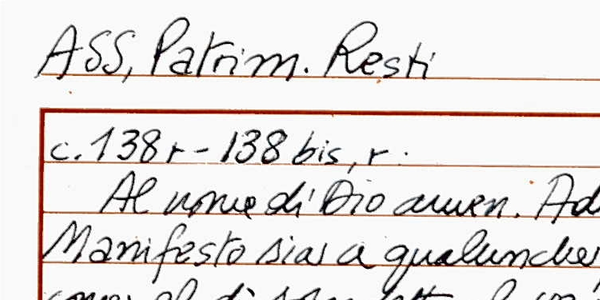 ASS, Patrim. Resti
c. 138 r - 138 bis, r.
Al nome di Dio amen. Ad
Manifesto sia a qualunche
come el di